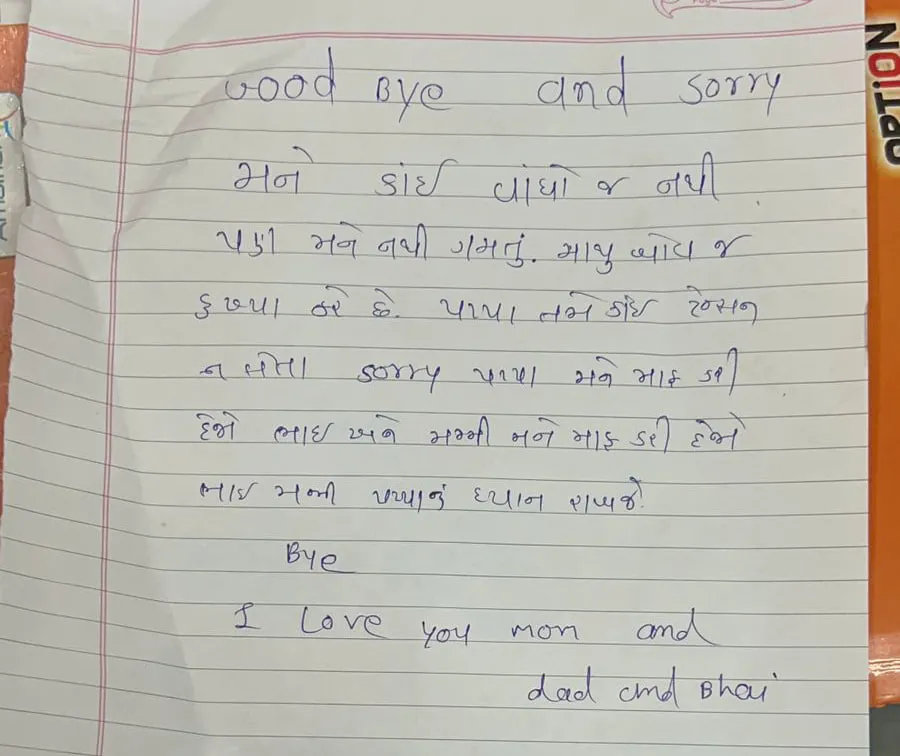 Good Bye and sorry
મને કાંઈ વાંધો જ નથી
પણ મને નથી ગમતું. માથુ બોવ જ
દુખ્યા કરે છે. પપ્પા તમે કાંઇ ટેન્સન
ન લેતા sorry પપ્પા મને માફ કરી
દેજો ભાઇ અને મમ્મી મને માફ કરી દેજો
ભાઇ મમ્મી પપ્પાનું ધ્યાન રાખજે.
Bye
I Love you mom and
dad and Bhai
OPTiON